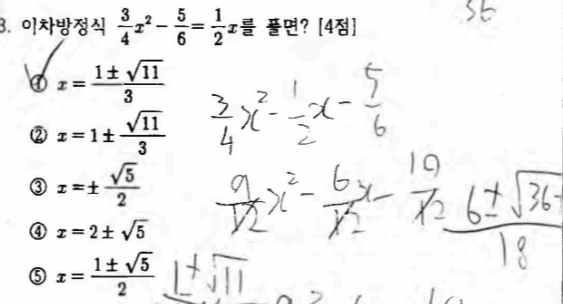 3. 이차방정식 3/4 x² - 5/6 = 1/2 x를 풀면? [4점]
① x = (1 ± √11)/3
② x = 1 ± √11/3
③ x = ± √5/2
④ x = 2 ± √5
⑤ x = (1 ± √5)/2
3/4 x² - 1/2 x - 5/6
9/12 x² - 6/12 x - 10/12
6 ± √36+
18
1 ± √11